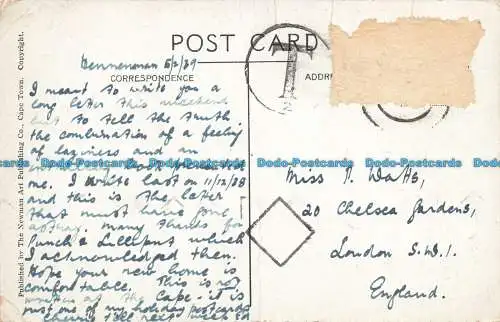 POST CARD
CORRESPONDENCE
ADDR
Published by The Newman Art Publishing Co., Cape Town. Copyright.
5/2/39
I meant to write you a
long letter this weekend
but to tell the truth
the combination of a feeling
of laziness and an
me. I wrote last on 11/12/38
and this is the letter
that must have gone
astray. Many thanks for
Punch & Lilliput which
I acknowledged then.
Hope your new home is
comfortable. This is not
written at the Cape - it is
just one of my holiday postcards
Cheers till next week
T
Miss I. Watts,
20 Chelsea Gardens,
London S.W.1.
England.
Dodo-Postcards Dodo-Postcards Dodo-Postcards Dodo-Postcards Dodo-Postcards